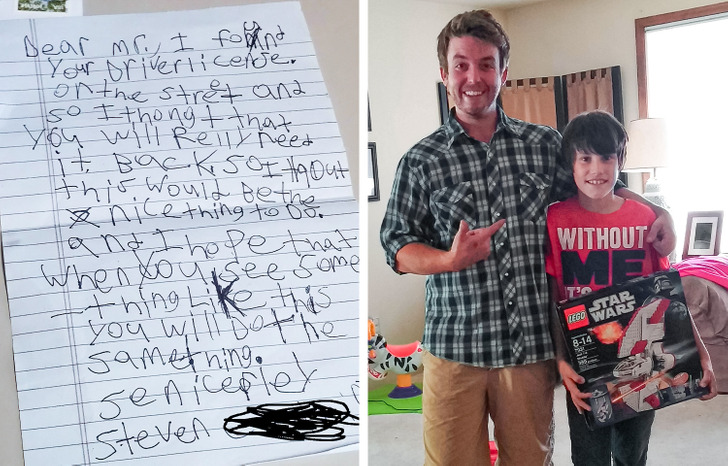 Dear mr, I found
Your Driver license.
on the stret and
so I thongt that
You will Relly need
it BACK. SO I thout
this would Be the
nice thing to Do.
and I hope that
when you see some
-thing Like this
you will Do the
something.
senicerley
steven
WITHOUT
ME
IT'S
LEGO
STAR
WARS
8-14